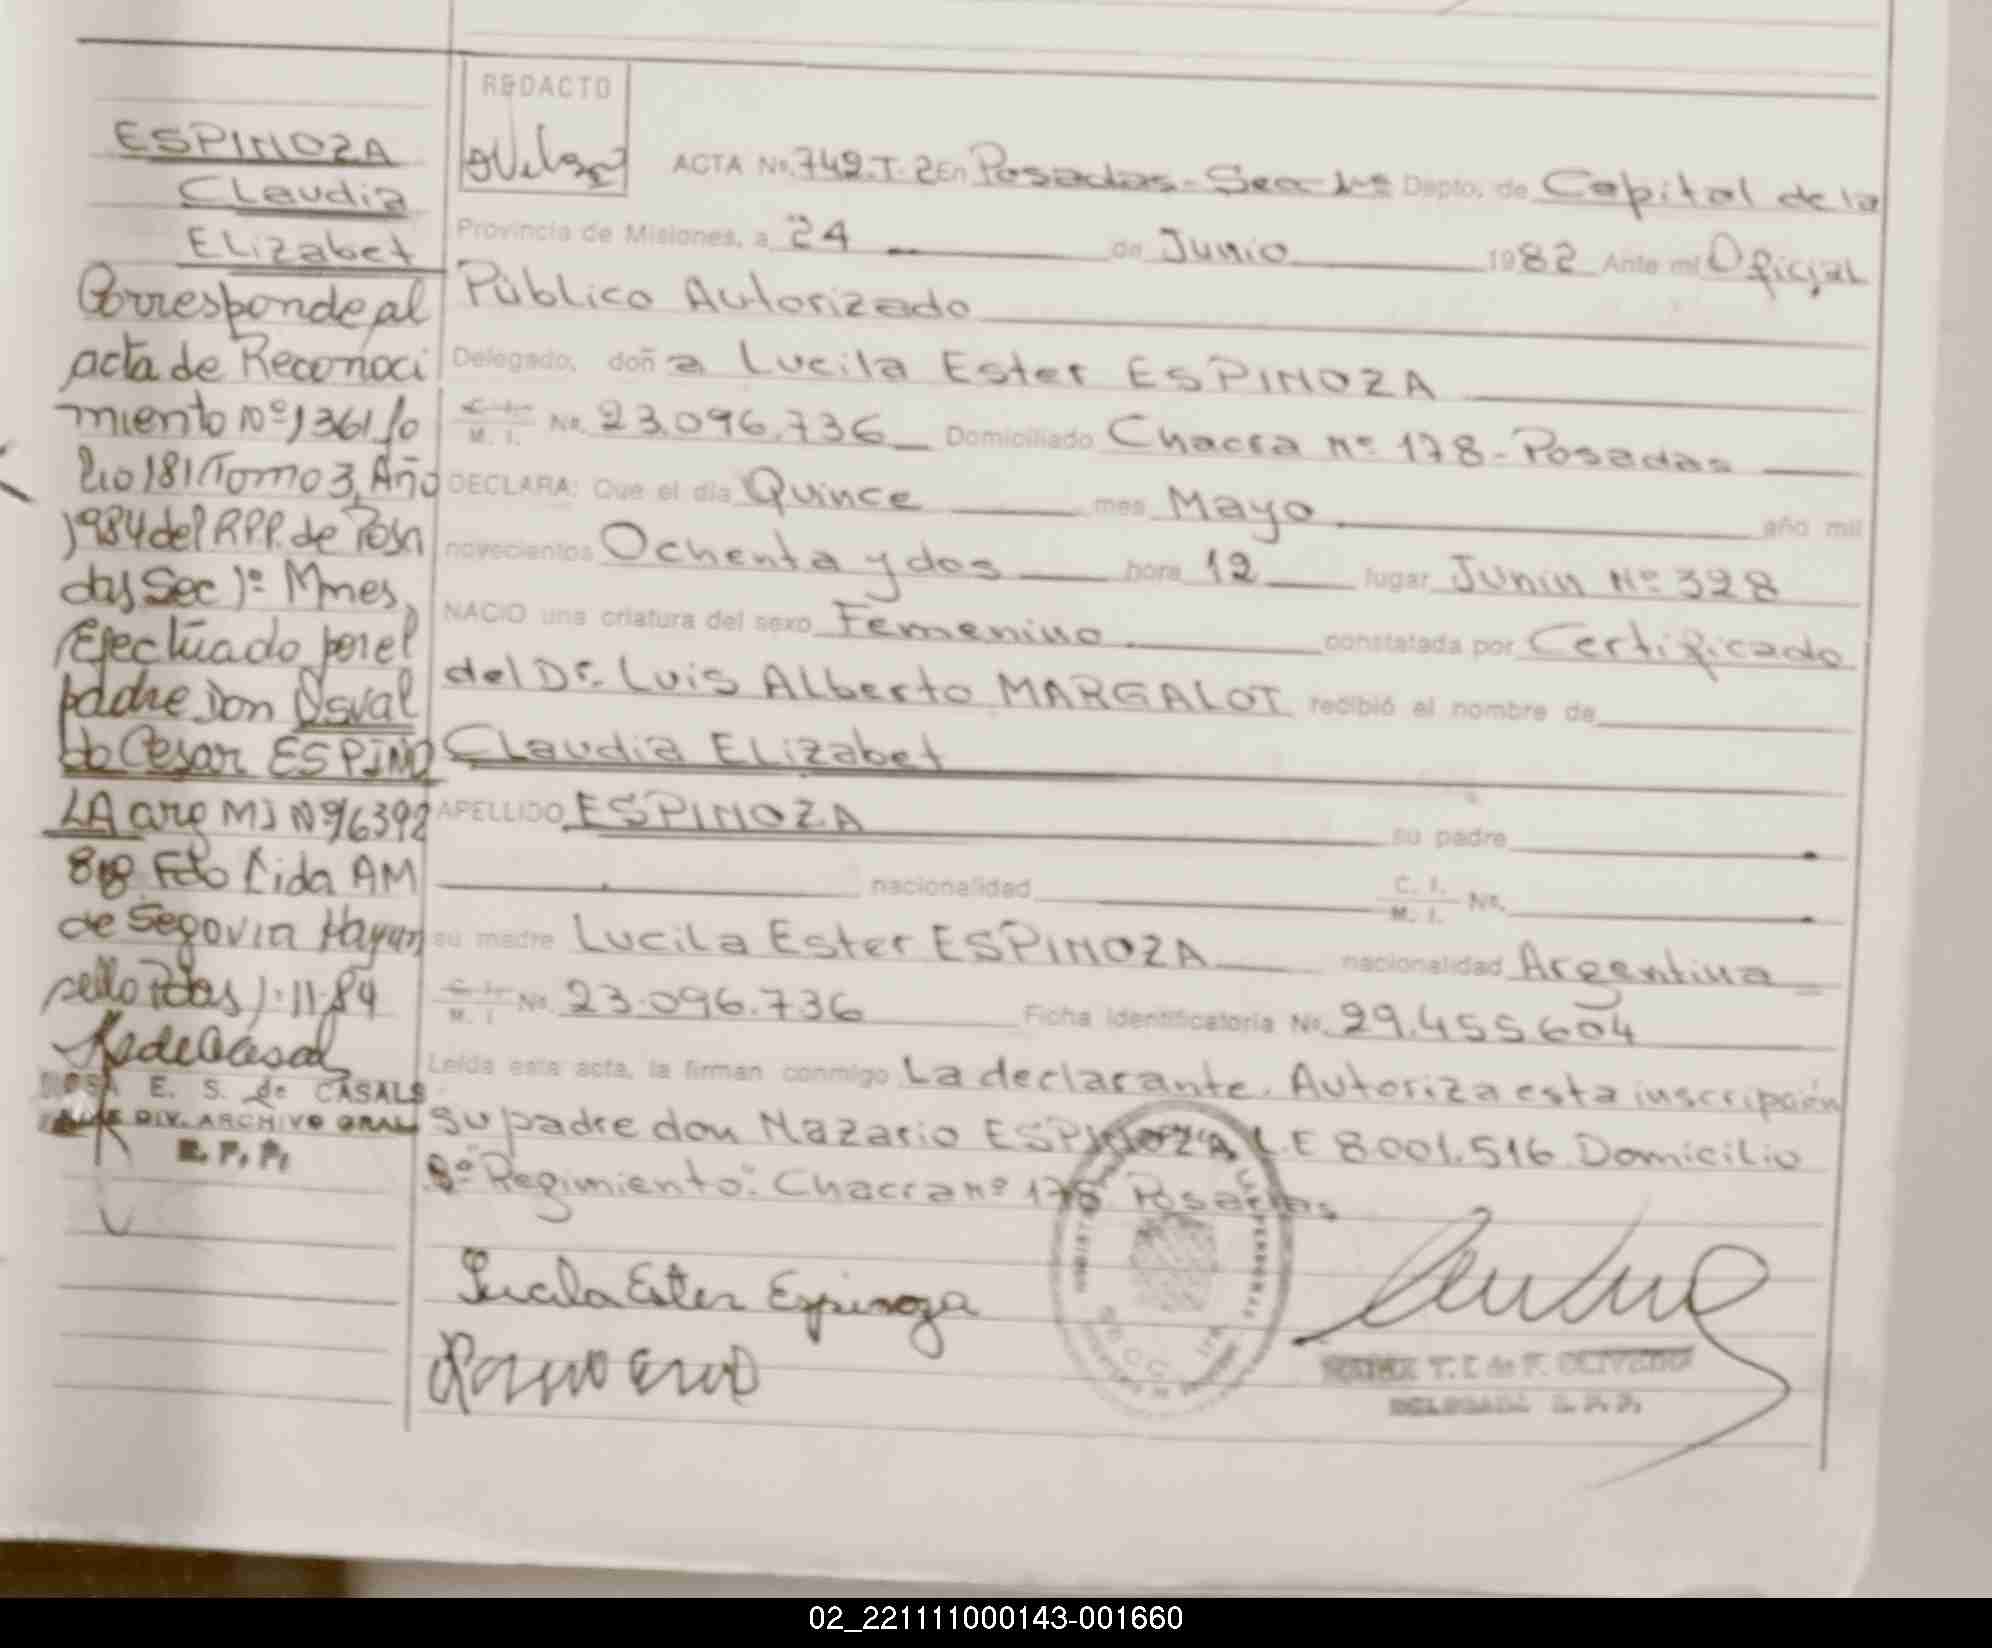 ESPINOZA
Claudia
Elizabet
Corresponde al
acta de Reconoci
miento Nº 1361 fo
lio 181 Tomo 3, Año
1984 del R.P.P. de Posa
das Sec 1º Mnes,
Efectuado por el
padre Don Osval
do Cesar ESPINO
ZA arg MI Nº 16392
Fdo Lida AM
de Segovia Hay un
sello Pdas 1-11-84
E. S. de CASALS
DIV. ARCHIVO GRAL
R. P. P.
REDACTO
ACTA Nº 749.T-2 En Posadas-Sec 1ª Dapto. de Capital de la
Provincia de Misiones, a 24 de Junio 1982 Ante mí Oficial
Público Autorizado
Delegado, doña Lucila Ester ESPINOZA
C.I. M.I. No. 23.096.736 Domiciliado Chacra nº 178-Posadas
DECLARA: Que el día Quince mes Mayo año mil
novecientos Ochenta y dos hora 12 lugar Junín Nº 328
NACIO una criatura del sexo Femenino constatada por Certificado
del Dr. Luis Alberto MARGALOT recibió el nombre de
Claudia Elizabet
APELLIDO ESPINOZA su padre
nacionalidad C. I. M. I. No.
su madre Lucila Ester ESPINOZA nacionalidad Argentina
C.I. M. I. No. 23.096.736 Ficha Identificatoria No. 29.455.604
Leída esta acta, la firman conmigo La declarante. Autoriza esta inscripción
su padre don Nazario ESPINOZA L.E 8.001.516 Domicilio
Regimiento: Chacra nº 178 Posadas
Lucila Ester Espinoza
T. I. de F. OLIVEIRA
DELEGADA R. P. P.
02_221111000143-001660